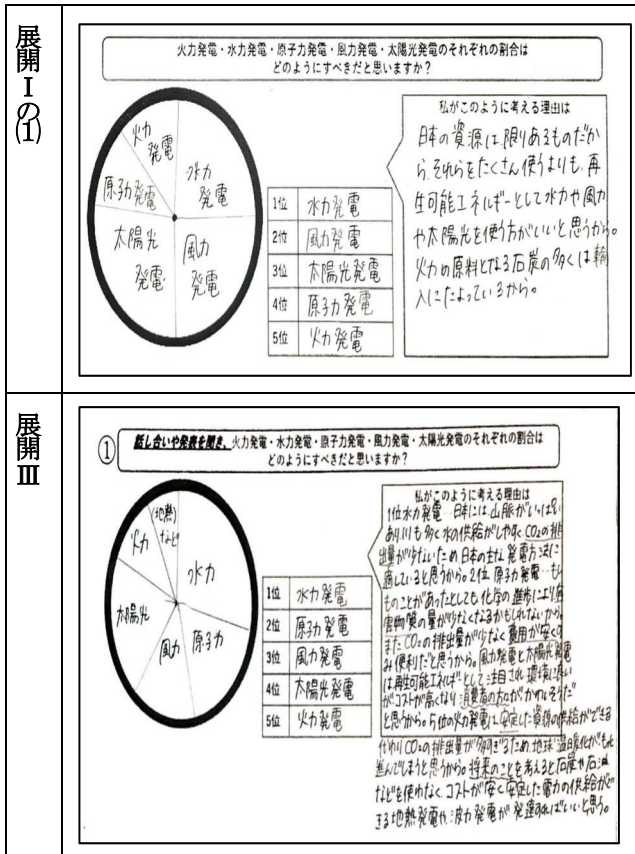 展開Ⅰの(1)
火力発電・水力発電・原子力発電・風力発電・太陽光発電のそれぞれの割合は
どのようにすべきだと思いますか？
火力
発電
水力
発電
原子力発電
太陽光
発電
風力
発電
1位 水力発電
2位 風力発電
3位 太陽光発電
4位 原子力発電
5位 火力発電
私がこのように考える理由は
日本の資源は、限りあるものだか
ら、それらをたくさん使うよりも、再
生可能エネルギーとして水力や風力
や太陽光を使う方がいいと思うから。
火力の原料となる石炭の多くは輸
入にたよっているから。
展開Ⅲ
①
話し合いや発表を聞き、火力発電・水力発電・原子力発電・風力発電・太陽光発電のそれぞれの割合は
どのようにすべきだと思いますか？
(地熱)
など
火力
水力
太陽光
風力
原子力
1位 水力発電
2位 原子力発電
3位 風力発電
4位 太陽光発電
5位 火力発電
私がこのように考える理由は
1位水力発電 日本には山脈がいっぱい
あり、川も多く水の供給がしやすく、CO2の排
出量が少ないため日本の主な発電方法に
適していると思うから。2位 原子力発電…もし
ものことがあったとしても、化学の進歩により有
害物質の量が少なくなるかもしれないから。
またCO2の排出量が少なく費用が安くす
み便利だと思うから。風力発電と太陽光発電
は再生可能エネルギーとして注目され環境に良い
がコストが高くなり消費者の方々がかわいそうだ
と思うから。5位の火力発電は安定した資源の供給ができる
代わりCO2の排出量が多すぎるため、地球温暖化がもっと
進んでしまうと思うから。将来のことを考えると石炭や石油
などを使わなく、コストが安く安定した電力の供給がで
きる地熱発電や波力発電が発達すればいいと思う。